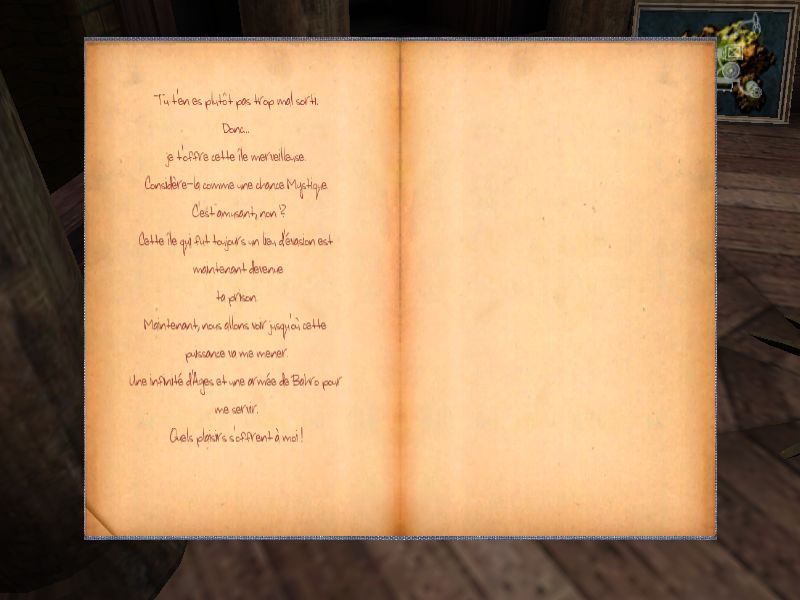 Tu t'en es plutôt pas trop mal sorti.
Donc...
je t'offre cette île merveilleuse.
Considère-la comme une chance Mystique.
C'est amusant, non ?
Cette île qui fut toujours un lieu d'évasion est
maintenant devenue
ta prison.
Maintenant, nous allons voir jusqu'où cette
puissance va me mener.
Une infinité d'Ages et une armée de Bahro pour
me servir.
Quels plaisirs s'offrent à moi !